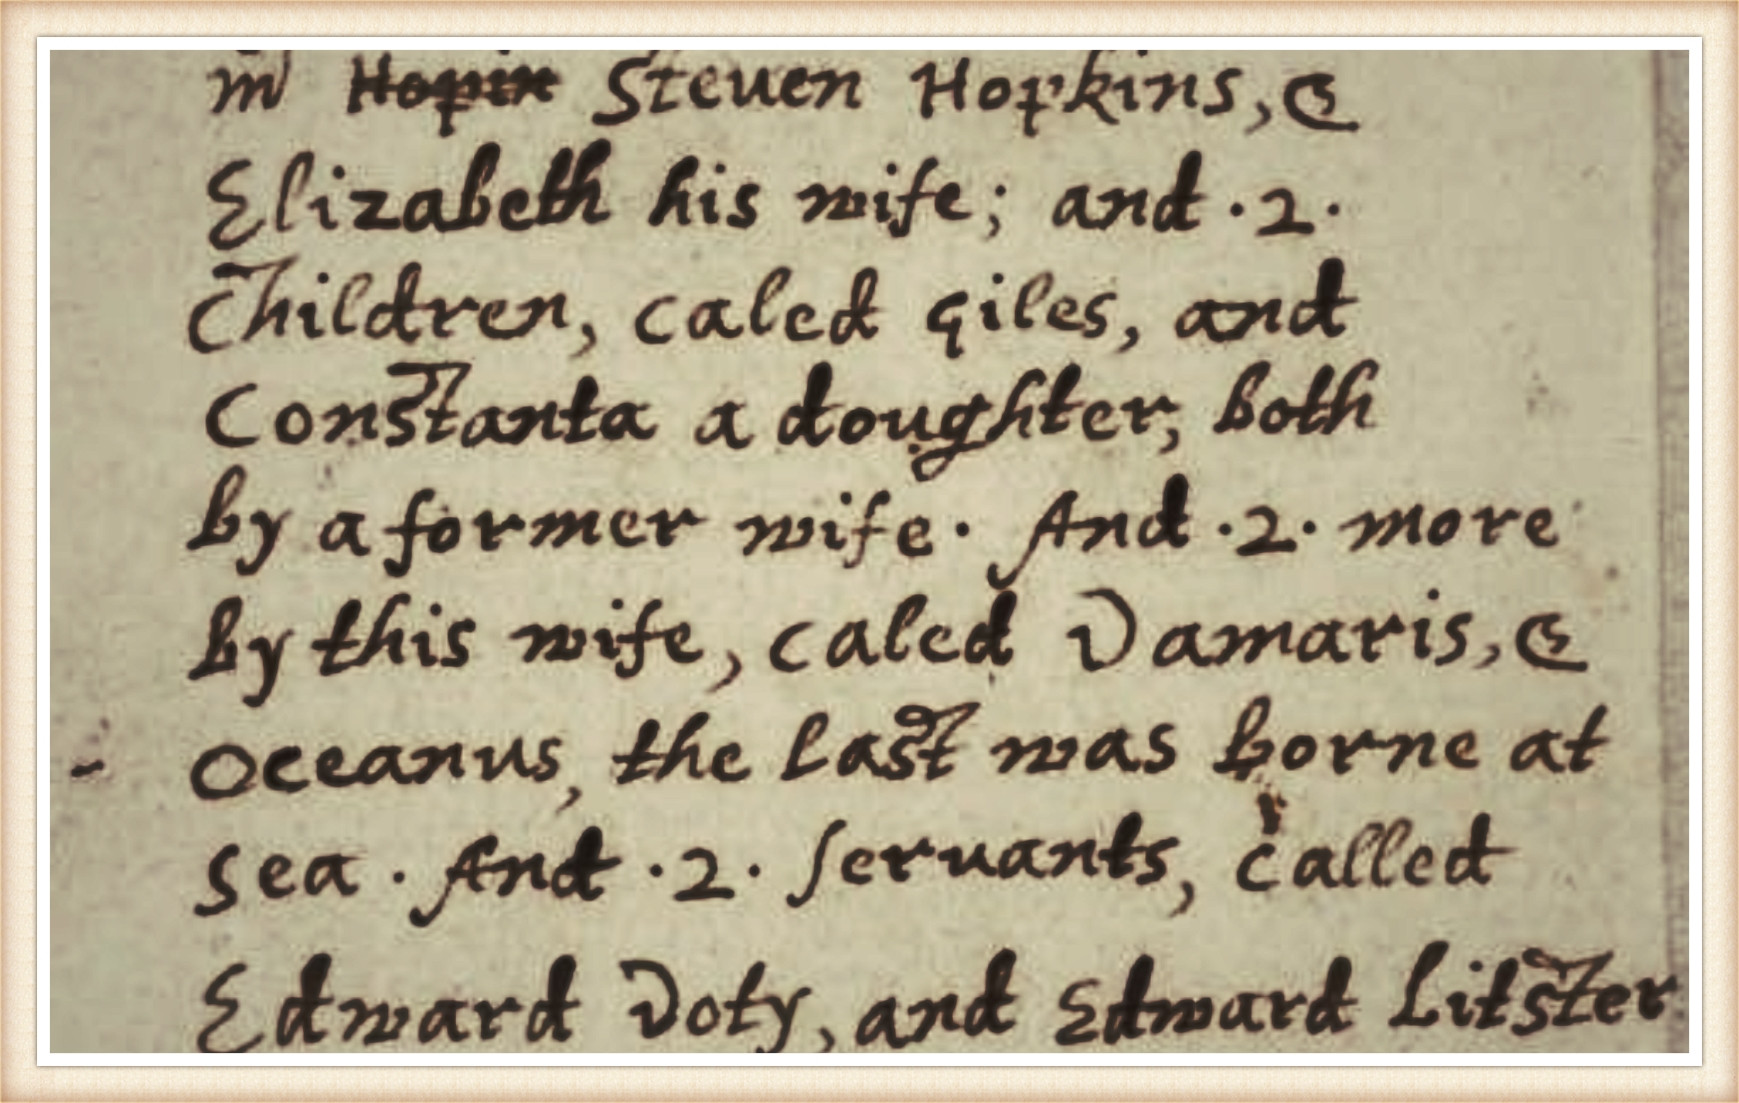 mr Hopin Steven Hopkins, &
Elizabeth his wife; and ·2·
Children, caled Giles, and
Constanta a doughter, both
by a former wife. And ·2· more
by this wife, caled Damaris, &
Oceanus, the last was borne at
sea. And ·2· servants, called
Edward Doty, and Edward Litster